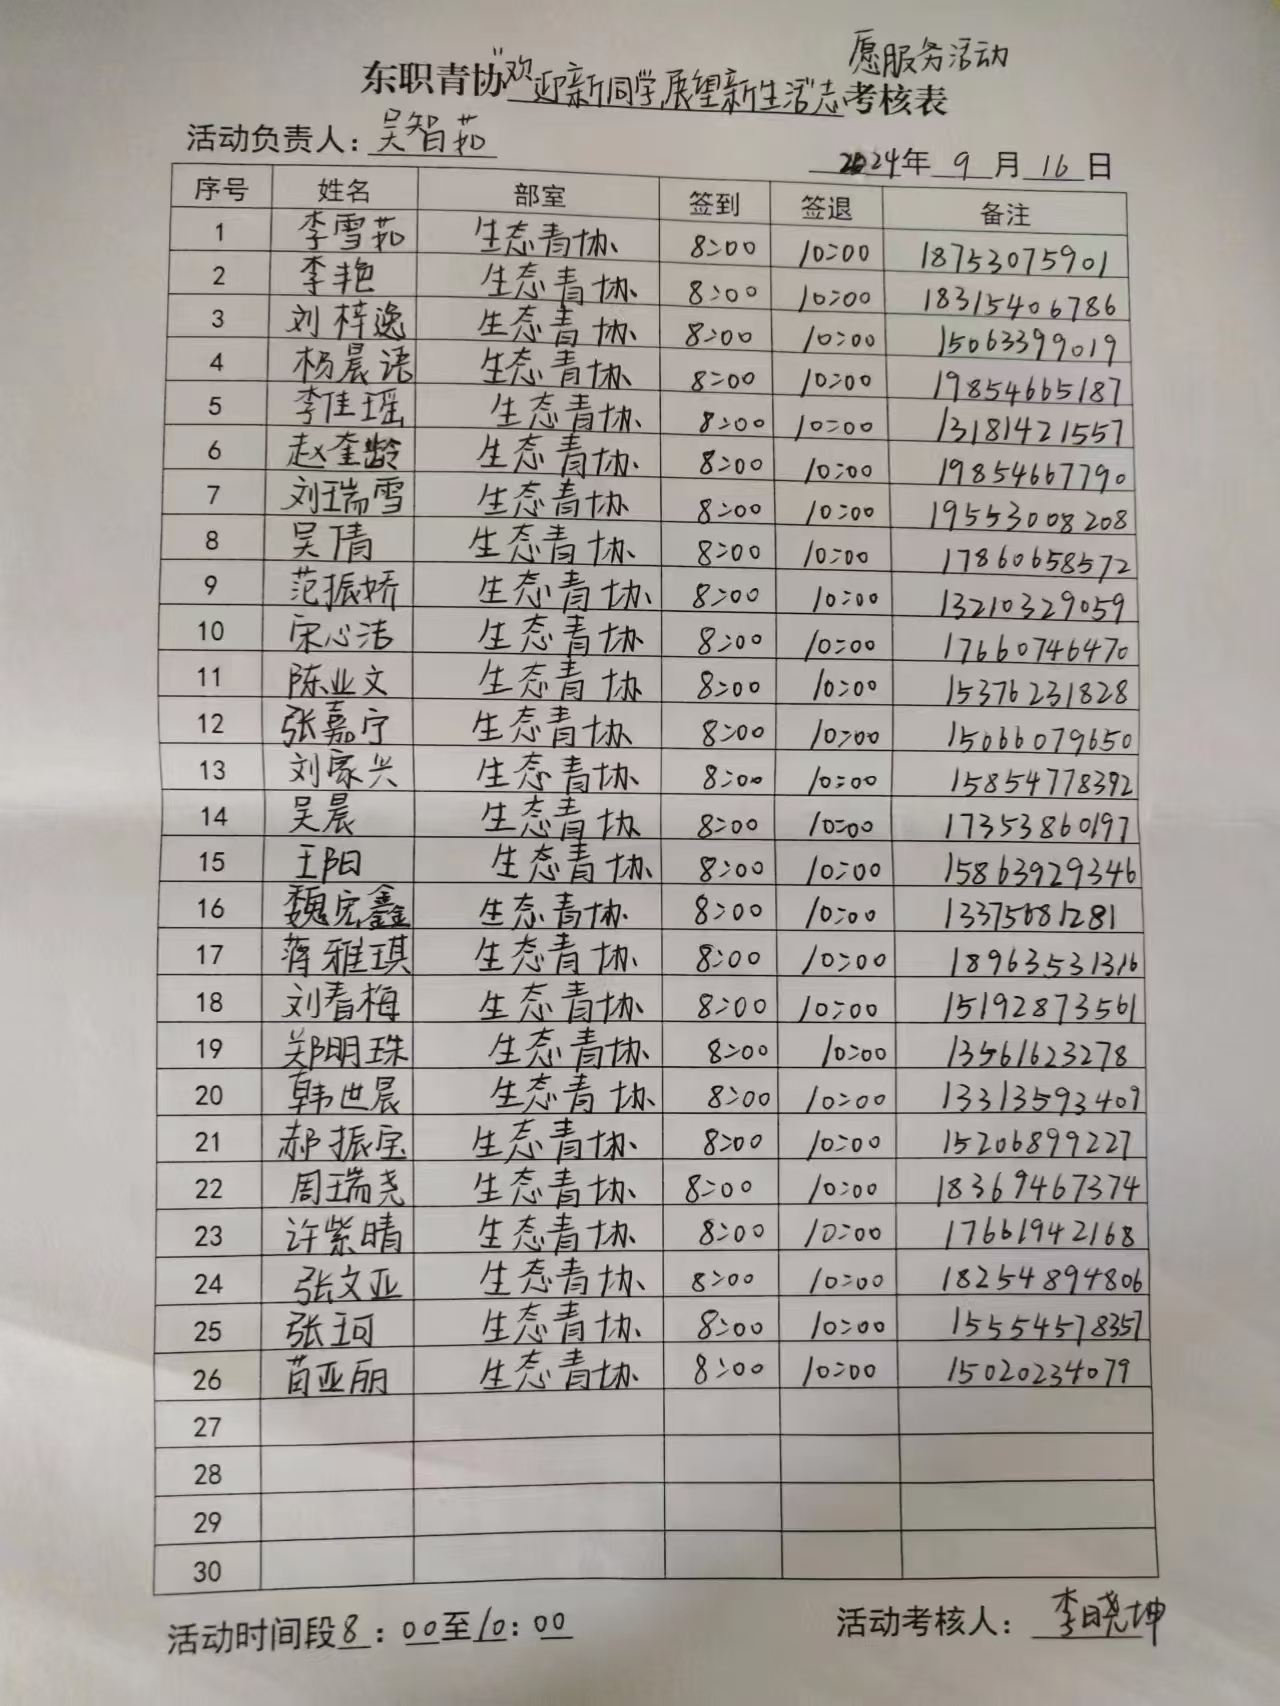 愿服务活动
东职青协“欢迎新同学,展望新生活”志考核表
活动负责人：吴智茹
2024年 9 月 16 日
序号 姓名 部室 签到 签退 备注
1 李雪茹 生态青协 8:00 10:00 18753075901
2 李艳 生态青协 8:00 10:00 18315406786
3 刘梓逸 生态青协 8:00 10:00 15063399019
4 杨晨语 生态青协 8:00 10:00 19854665187
5 李佳瑶 生态青协 8:00 10:00 13181421557
6 赵奎龄 生态青协 8:00 10:00 19854667790
7 刘瑞雪 生态青协 8:00 10:00 19553008208
8 吴倩 生态青协 8:00 10:00 17860658572
9 范振娇 生态青协 8:00 10:00 13210329059
10 宋心洁 生态青协 8:00 10:00 17660746470
11 陈业文 生态青协 8:00 10:00 15376231828
12 张嘉宁 生态青协 8:00 10:00 15066079650
13 刘家兴 生态青协 8:00 10:00 15854778392
14 吴晨 生态青协 8:00 10:00 17353860197
15 王阳 生态青协 8:00 10:00 15863929346
16 魏宏鑫 生态青协 8:00 10:00 13375681281
17 蒋雅琪 生态青协 8:00 10:00 18963531316
18 刘春梅 生态青协 8:00 10:00 15192873561
19 郑明珠 生态青协 8:00 10:00 13561623278
20 韩世晨 生态青协 8:00 10:00 13313593409
21 郝振宝 生态青协 8:00 10:00 15206899227
22 周瑞尧 生态青协 8:00 10:00 18369467374
23 许紫晴 生态青协 8:00 10:00 17661942168
24 张文亚 生态青协 8:00 10:00 18254894806
25 张珂 生态青协 8:00 10:00 15554578357
26 苗亚丽 生态青协 8:00 10:00 15020234079
27
28
29
30
活动时间段8：00至10：00 活动考核人：李晓坤